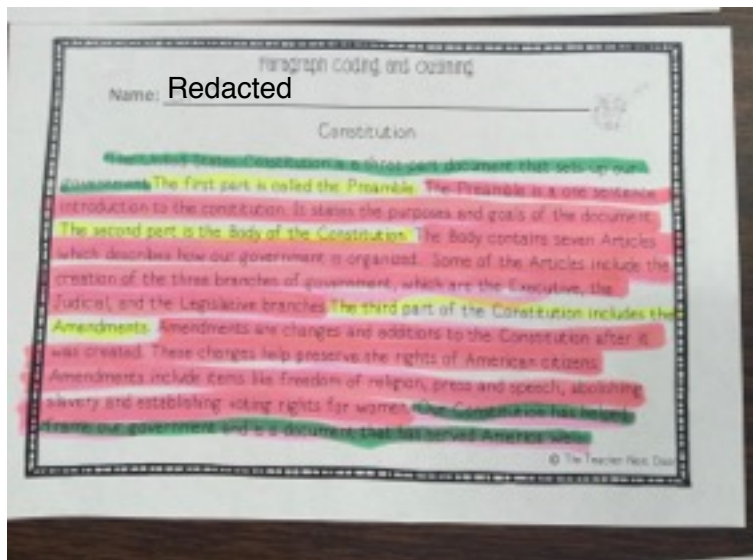 Paragraph Coding and Outlining
Name: Redacted
Constitution
The United States Constitution is a three part document that sets up our
government. The first part is called the Preamble. The Preamble is a one sentence
introduction to the constitution. It states the purposes and goals of the document.
The second part is the Body of the Constitution. The Body contains seven Articles
which describes how our government is organized. Some of the Articles include the
creation of the three branches of government, which are the Executive, the
Judicial, and the Legislative branches. The third part of the Constitution includes the
Amendments. Amendments are changes and additions to the Constitution after it
was created. These changes help preserve the rights of American citizens.
Amendments include items like freedom of religion, press and speech, abolishing
slavery and establishing voting rights for women. Our Constitution has helped
frame our government and is a document that has served America well.
© The Teacher Next Door